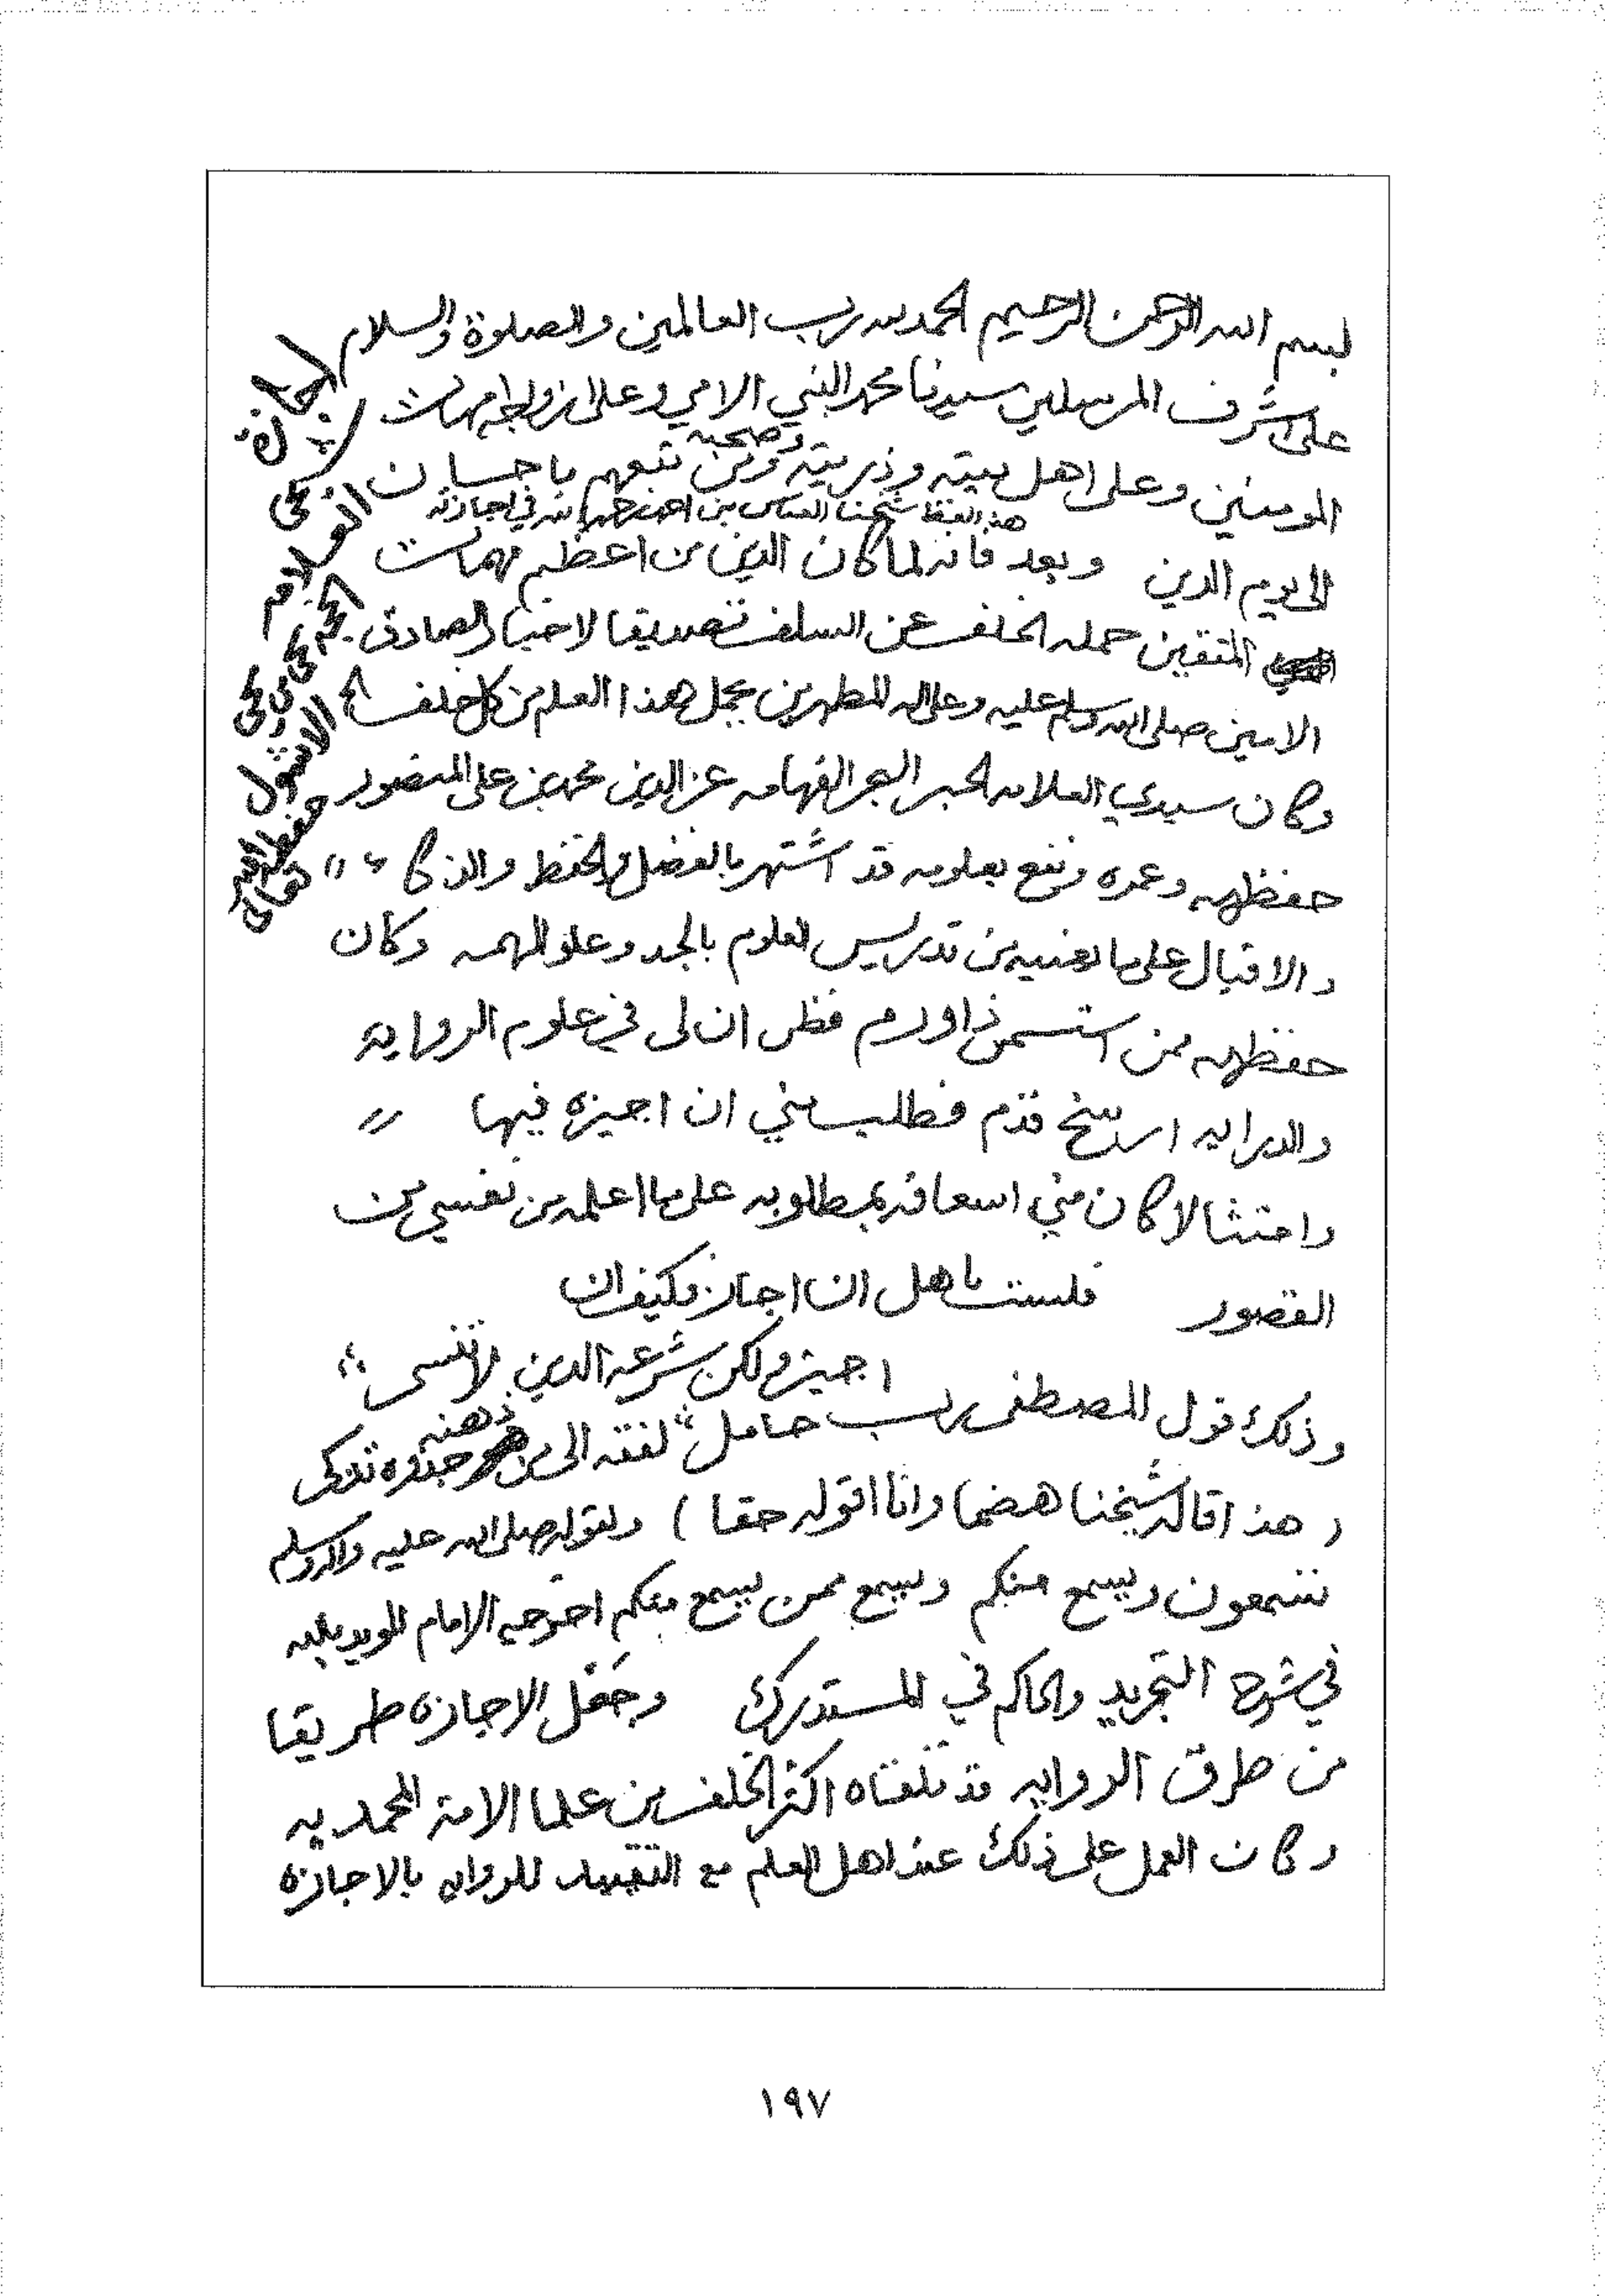 بسم الله الرحمن الرحيم الحمد لله رب العالمين والصلوة والسلام
على اشرف المرسلين سيدنا محمد النبي الامي وعلى ازواجه امهات
المومنين وعلى اهل بيته وذريته وصحبه ومن تبعهم باحسان
هذا لفظ شيخنا العباس بن احمد رحمه الله في اجازته
الى يوم الدين وبعد فانه لما كان الدين من اعظم مهمات
المتقين حمله الخلف عن السلف تصديقا لاخبار الصادق
الامين صلى الله وسلم عليه وعلى اله المطهرين يحمل هذا العلم من كل خلف الخ
وكان سيدي العلامه الحبر البحر الفهامه عز الدين محمد بن علي المنصور
حفظه الله وعمره ونفع بعلومه قد اشتهر بالفضل والحفظ والذكا ء
والاقبال على ما يعنيه من تدريس العلوم بالجد وعلو الهمه وكان
حفظه الله ممن استسمن ذا ورم فظن ان لى في علوم الروايه
والدرايه ارسخ قدم فطلب مني ان اجيزه فيها
وامتثالا كان مني اسعافه بمطلوبه على ما اعلمه من نفسي من
القصور فلست باهل ان اجاز فكيف ان
اجيز ولكن شرعة الدين لا تنسى
وذلك قول المصطفى رب حامل لفقه الى من ذهنه جذوه تذكى
( هذا قاله شيخنا هضما وانا اقوله حقا ) ولقوله صلى الله عليه واله وسلم
تسمعون ويسمع منكم ويسمع ممن يسمع منكم اخرجه الامام المويد بالله
في شرح التجريد والحاكم في المستدرك وجعل الاجازه طريقا
من طرق الروايه قد تلقاه اكثر الخلف من علما الامة المحمديه
وكان العمل على ذلك عند اهل العلم مع التقييد للروايه بالاجازه
اجازة
حفظه الله
تعالى
١٩٧